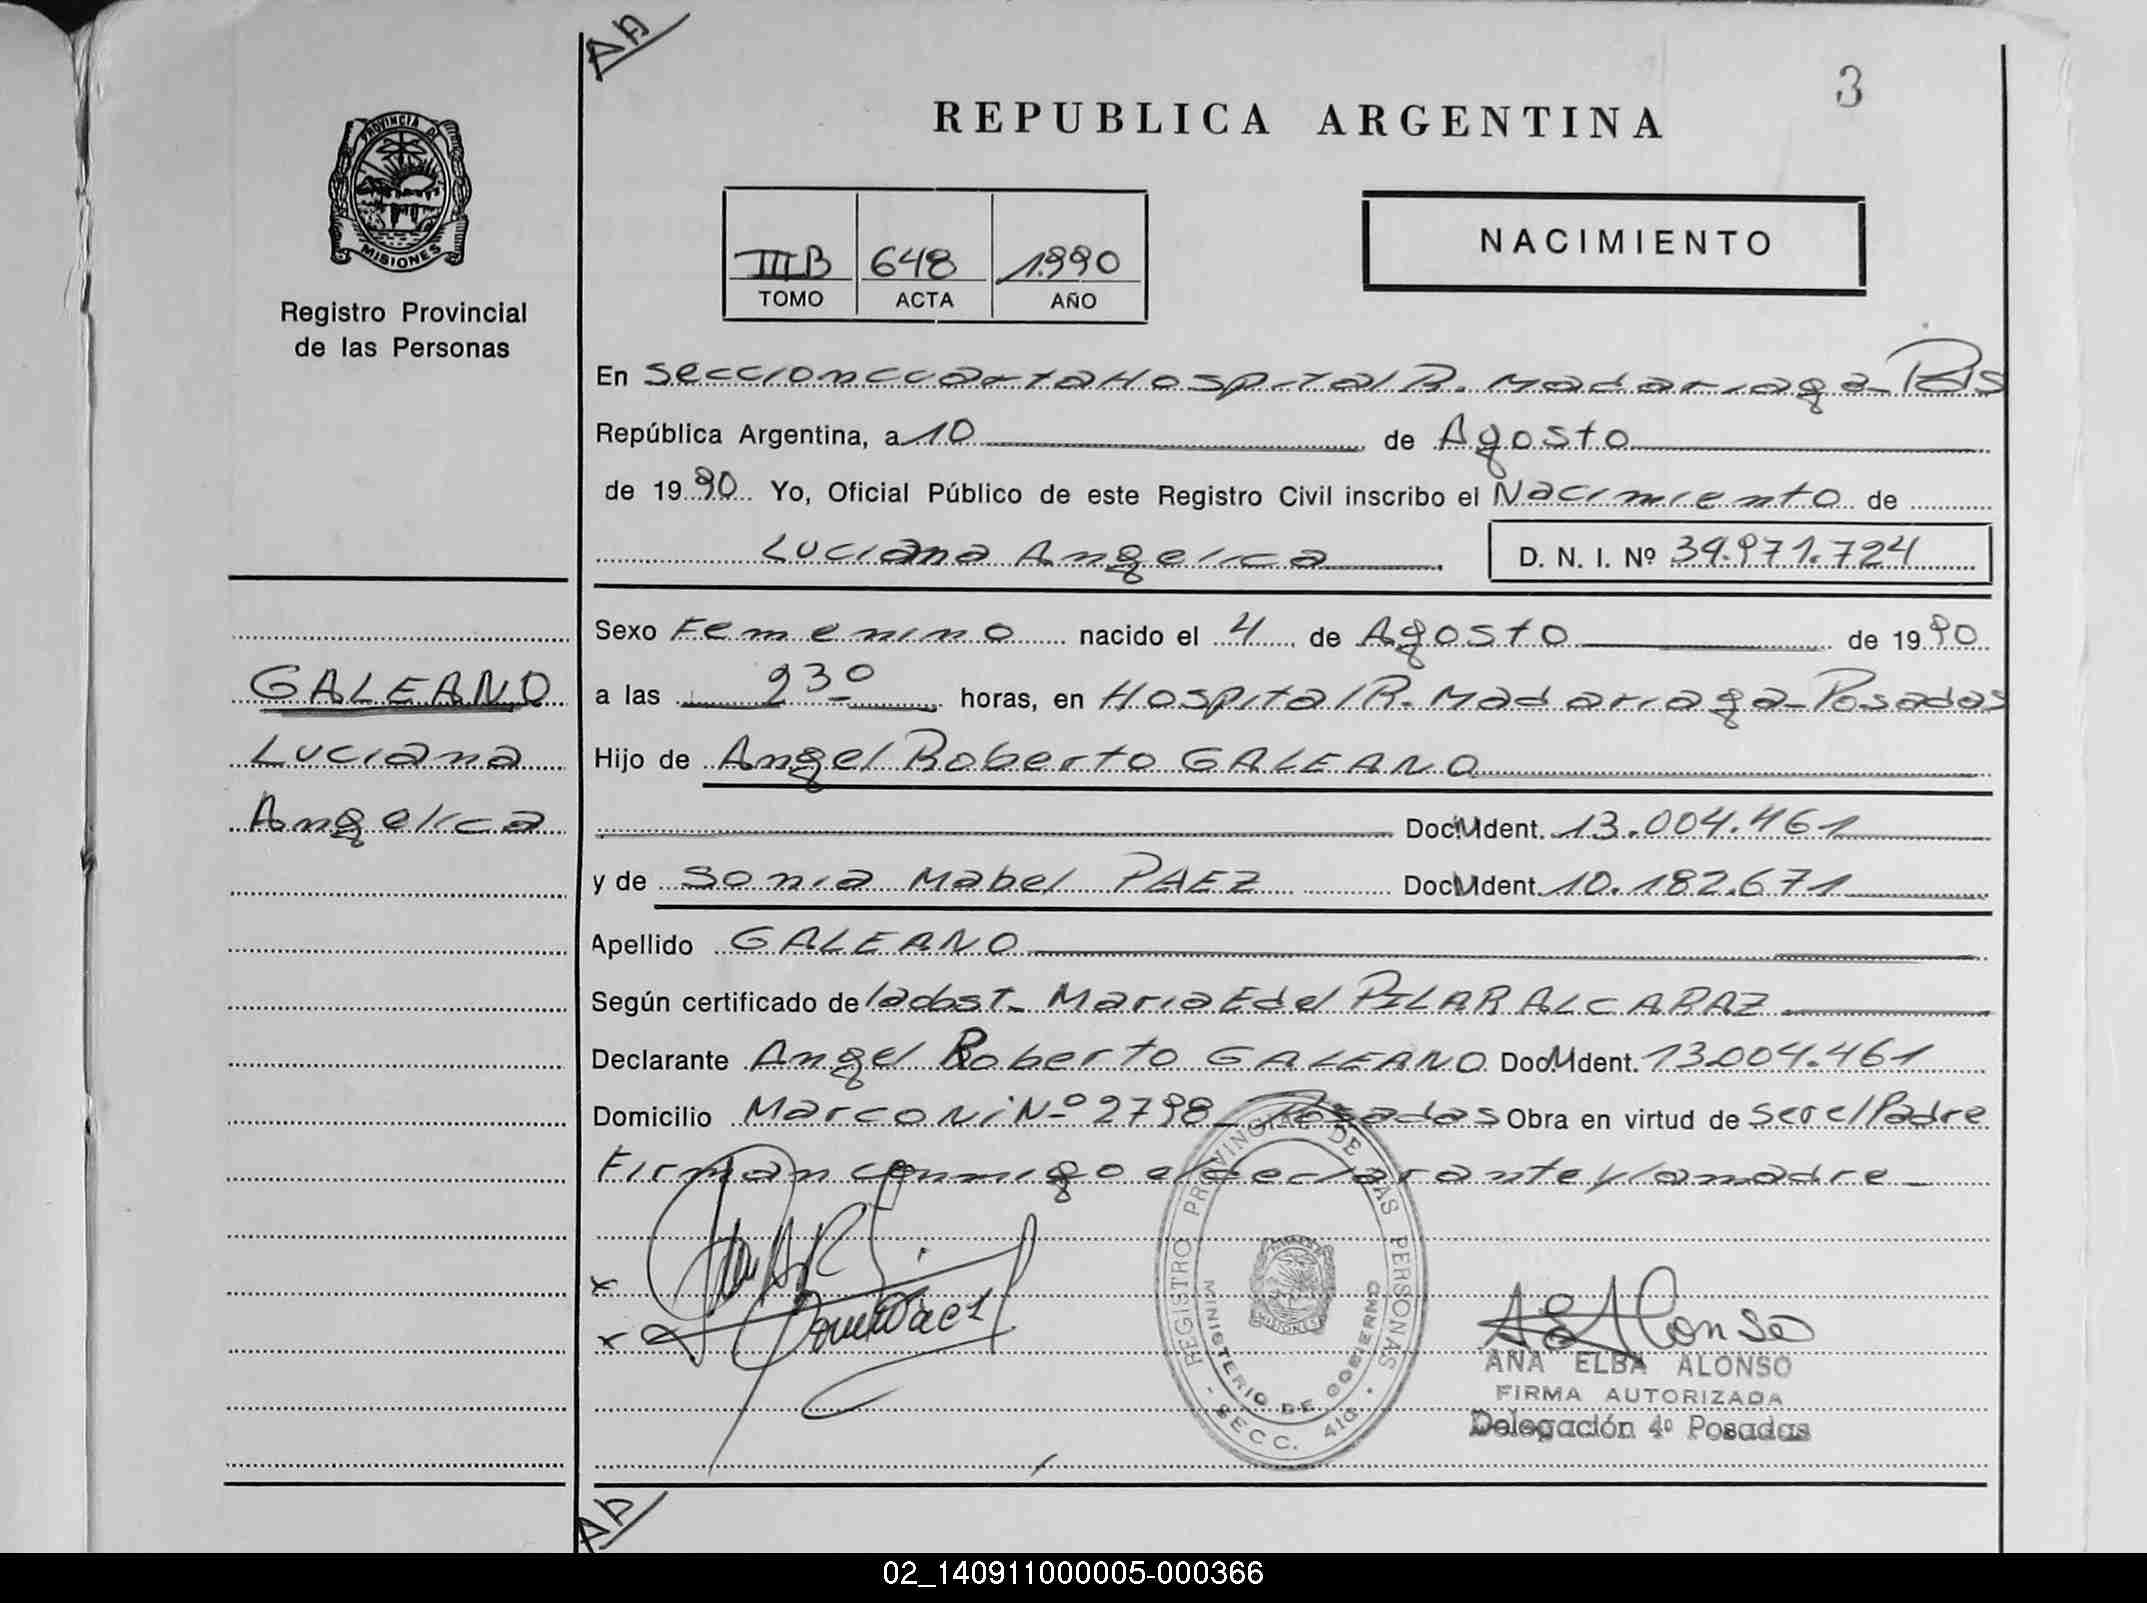 3
REPUBLICA ARGENTINA
PROVINCIA DE
MISIONES
Registro Provincial
de las Personas
III B 648 1.990
TOMO ACTA AÑO
NACIMIENTO
En Seccion cuarta Hospital R. Madariaga - Pdas
República Argentina, a 10 de Agosto
de 1990 Yo, Oficial Público de este Registro Civil inscribo el Nacimiento de
Luciana Angelica D. N. I. Nº 34.971.724
Sexo Femenino nacido el 4 de Agosto de 1990
a las 23º horas, en Hospital R. Madariaga - Posadas
Hijo de Angel Roberto GALEANO
Doc. Ident. 13.004.461
y de Sonia Mabel PAEZ Doc. Ident. 10.182.671
Apellido GALEANO
Según certificado de la obst. Maria E del PILAR ALCARAZ
Declarante Angel Roberto GALEANO Doc. Ident. 13.004.461
Domicilio Marconi Nº 2798 - Posadas Obra en virtud de ser el Padre
Firman conmigo el declarante y la madre -
GALEANO
Luciana
Angelica
REGISTRO PROVINCIAL DE LAS PERSONAS
MINISTERIO DE GOBIERNO
SECC. 4ta.
AEAlonso
ANA ELBA ALONSO
FIRMA AUTORIZADA
Delegación 4º Posadas
02_140911000005-000366